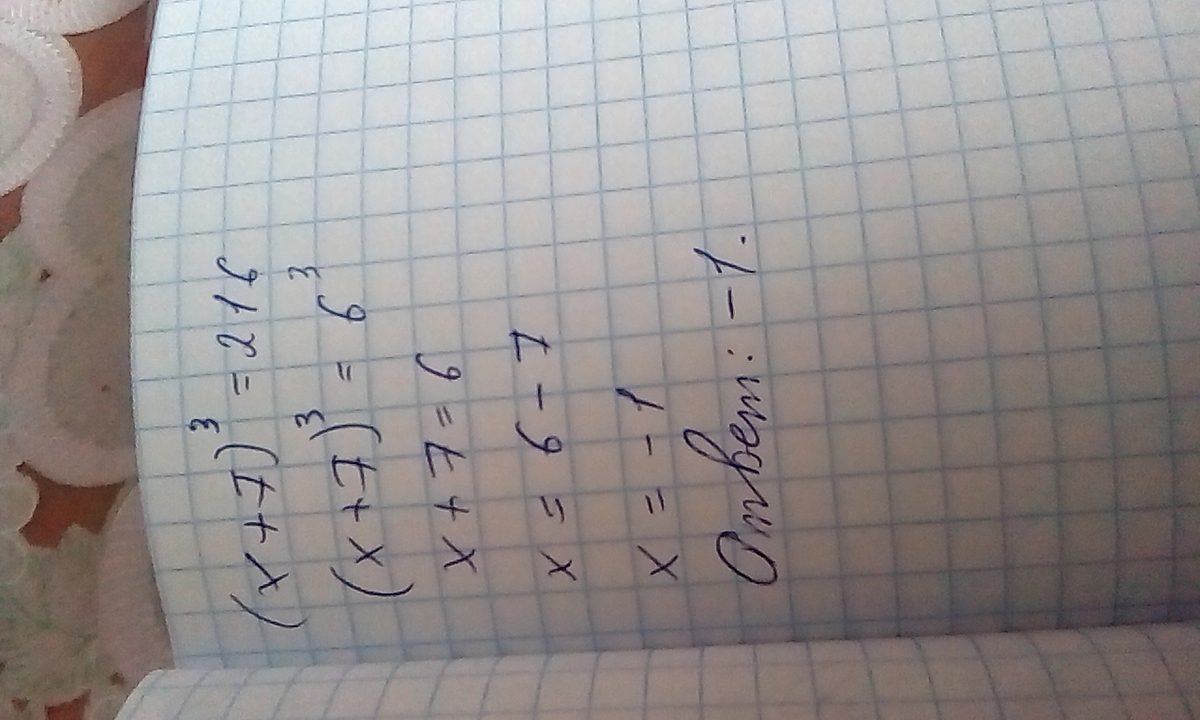 (x+7)³ = 216
(x+7)³ = 6³
x + 7 = 6
x = 6 - 7
x = - 1
Ответ: -1.